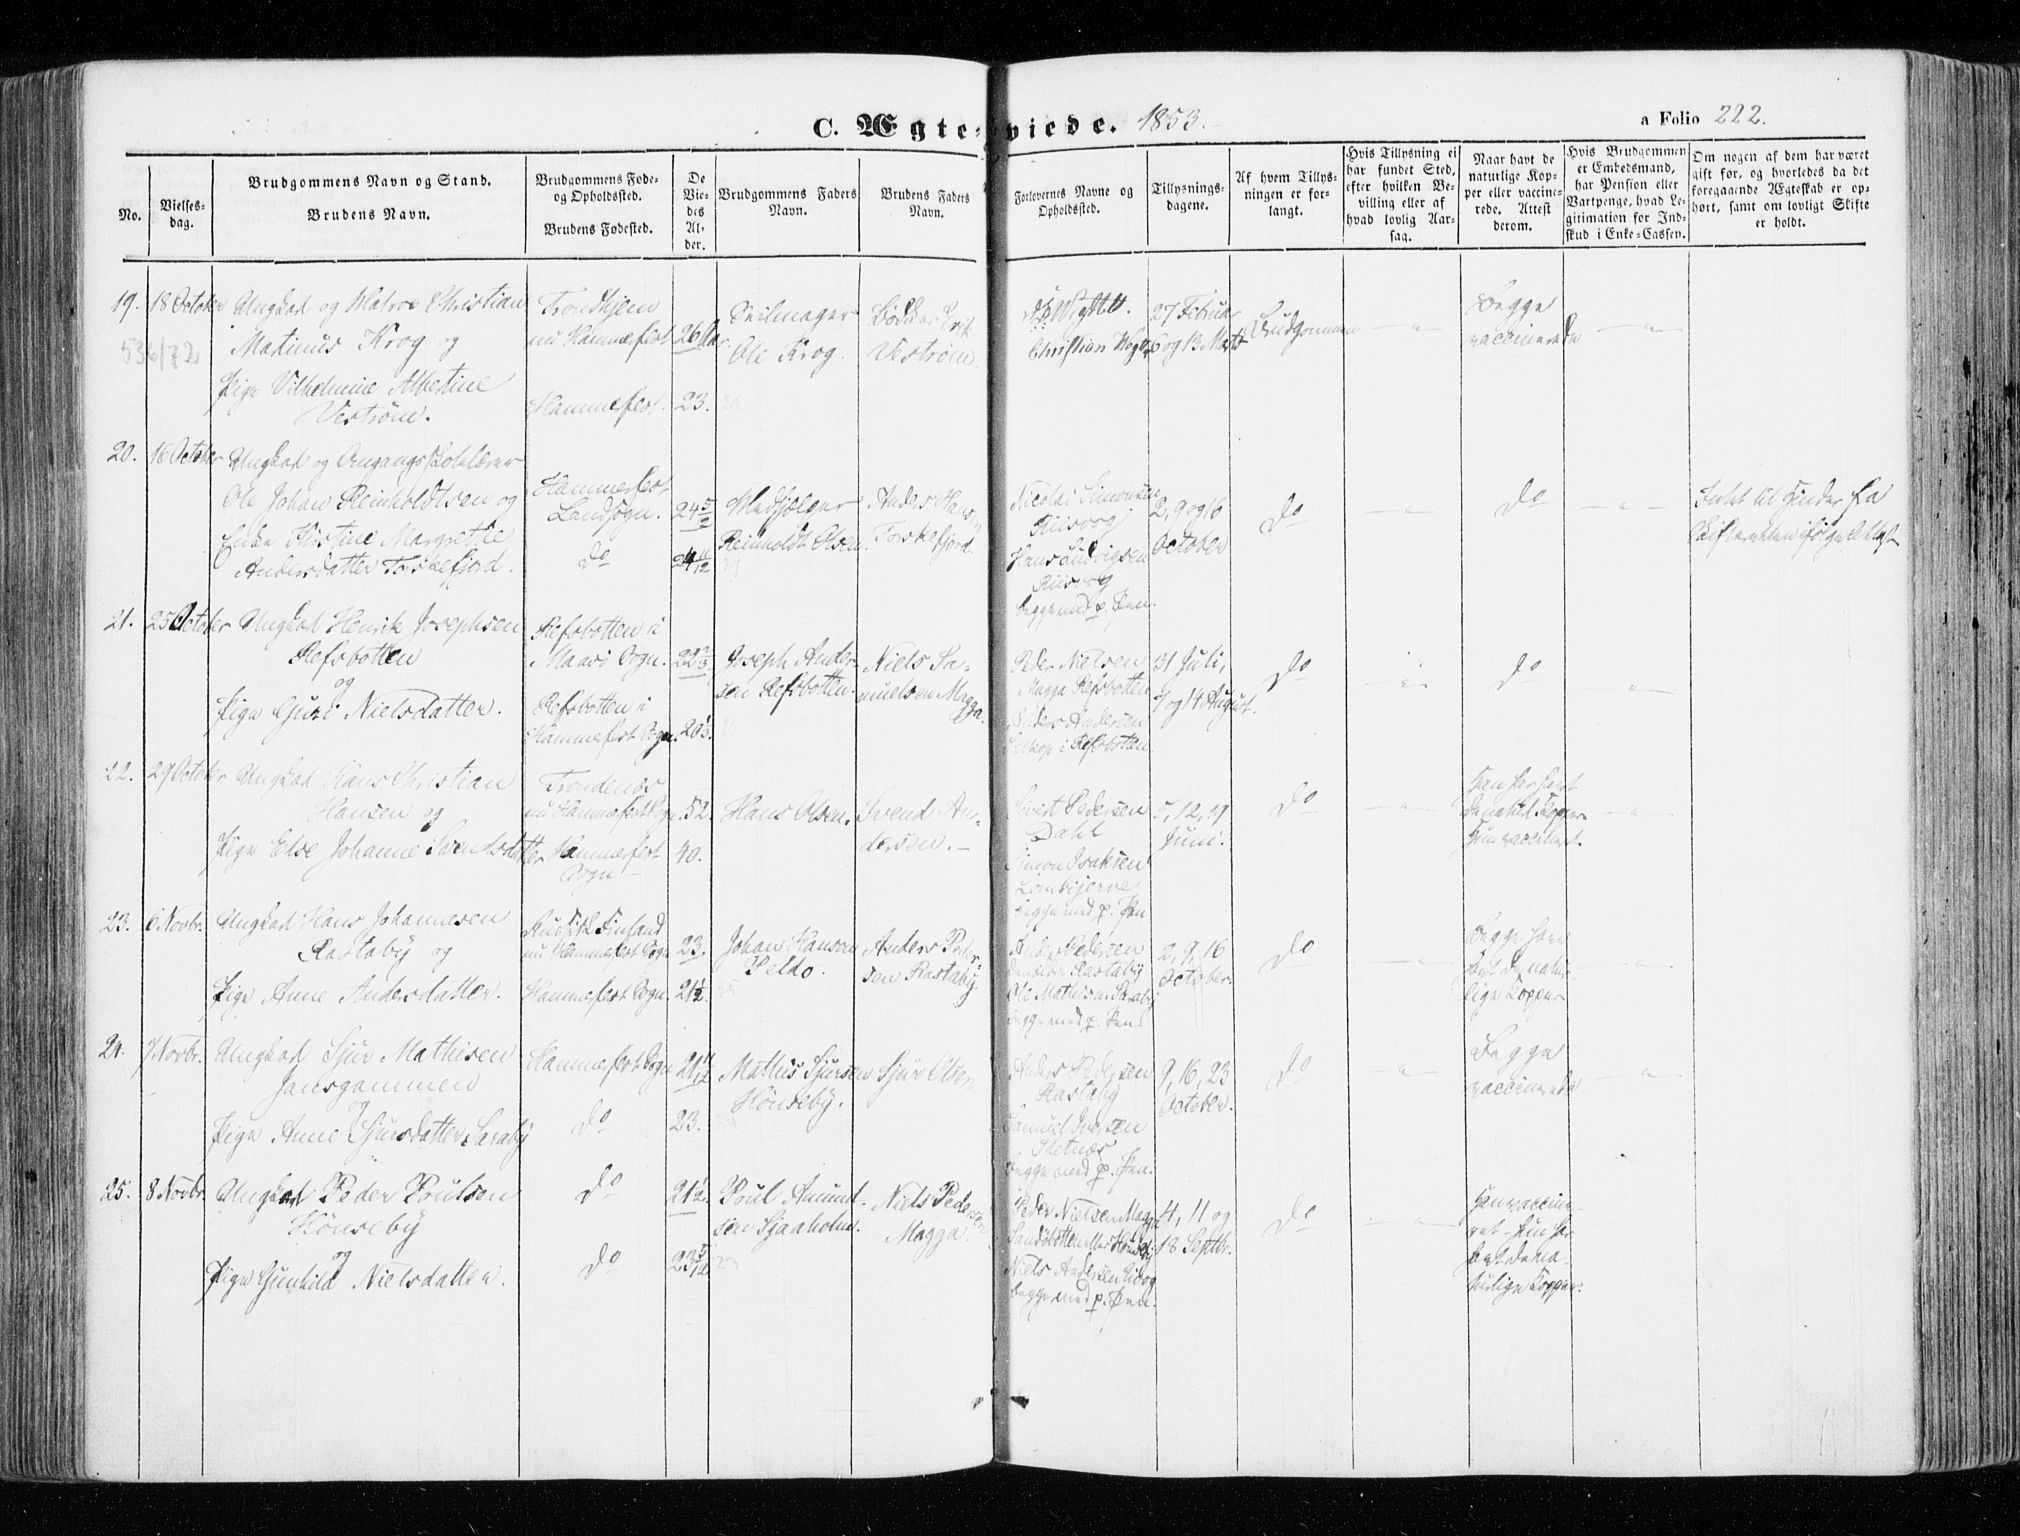 C. Ægte-viede. 1853.
a Folio 222.
No.
Vielses-
dag.
Brudgommens Navn og Stand.
Brudens Navn.
Brudgommens Føde-
og Opholdssted.
Brudens Fødested.
De
Vie-
des
Al-
der.
Brudgommens Faders
Navn.
Brudens Faders
Navn.
Forlovernes Navne og
Opholdssted.
Tillysnings-
dagene.
Af hvem Tillys-
ningen er for-
langt.
Hvis Tillysning ei
har fundet Sted,
efter hvilken Be-
villing eller af
hvad lovlig Aar-
sag.
Naar havt de
naturlige Kop-
per eller vaccine-
rede. Attest
derom.
Hvis Brudgommen
er Embedsmand,
har Pension eller
Vartpenge, hvad Le-
gitimation for Ind-
skud i Enke-Cassen.
Om nogen af dem har været
gift før, og hvorledes da det
foregaaende Ægteskab er op-
hørt, samt om lovligt Skifte
er holdt.
19. 18 October
Ungkad og Matros Christian
Matinus Krog og
Pige Vilhelmine Albertine
Vestrøm.
Trondhjem
nu Hammerfest
Hammerfest.
26 Aar
23.
Seilmager
Ole Krog.
Bødker Erik
Vestrøm
27 Februar
6 og 13 Marts
Brudgommen
Begge
vaccinerede
20. 16 October
Ungkad og Omgangsskolelærer
Ole Johan Reinholdtsen og
Enke Kirstine Margrethe
Andersdatter Torskefjord.
Hammerfest
Landsogn.
do
24 11/12
Reinholdt Olsen
Anders Hansen
Torskefjord.
Nicolai Simonsen
Hans Ludvigsen
begge med p. Pen.
2, 9 og 16
October
do
do
21. 25 October
Ungkad Henrik Josephsen
Refsbotten
og
Pige Guri Nielsdatter.
Refsbotten i
Maasø Sogn.
Refsbotten i
Hammerfest Sogn.
Joseph Ander-
sen Refsbotten.
Niels Sa-
muelsen Magga.
Peder Nielsen
Magga Refsbotten
Anders Andersen
i Refsbotten
31 Juli,
7 og 14 August.
do
do
22. 29 October
Ungkad Hans Christian
Hansen og
Pige Else Johanne Svendsdatter
Trondenæs
nu Hammerfest Sogn.
Hammerfest
Sogn
52.
40.
Hans Olsen.
Svend An-
dersen.
Sivert Pedersen
Dahl
Simon Isaksen
begge med p. Pen
5, 12, 19
Juni.
do
Han har havt
de naturl. Kopper
Hun vaccineret.
23. 6 Novbr.
Ungkad Hans Johannesen
Rastaby og
Pige Anne Andersdatter.
Russisk Finland
nu Hammerfest Sogn
Hammerfest Sogn.
23.
21 1/2.
Johan Hansen
Peldo.
Anders Peder-
sen Rastaby.
Anders Pedersen
Rastaby
Ole Mathisen Saraby
begge med p. Pen
2, 9, 16
October.
do
Begge have
havt de natur-
lige Kopper
24. 7 Novbr.
Ungkad Sjur Mathisen
Jansgammen
og
Pige Anne Sjursdatter Saraby
Hammerfest Sogn
do
23.
Mathis Sjursen
Hønseby.
Sjur Olsen
Anders Pedersen
Rastaby
Samuel Iversen
begge med p. Pen.
9, 16, 23
October.
do
Begge
vaccinerede
25. 8 Novbr.
Ungkad Peder Poulsen
Hønseby
og
Pige Gunhild Nielsdatter.
do
do
21 1/2.
23 5/12
Poul Amund-
sen Sjaaholm.
Niels Pedersen
Magga.
Peder Nielsen Magga
Niels Andersen
begge med p. Pen.
4, 11 og
18 Septbr.
do
Han vaccine-
ret. Hun har
havt de na-
turlige Kopper.